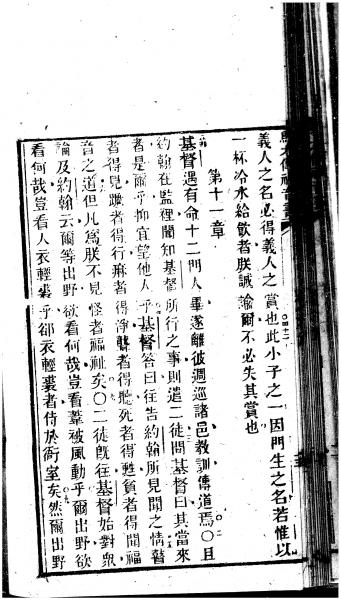 義人之名必得義人之賞也此小子之一因門生之名若惟以
一杯冷水給飲者朕誠諭爾不必失其賞也
第十一章
基督遇有命十二門人畢遂離彼週巡諸邑教訓傳道焉〇且
約翰在監裡聞知基督所行之事則遣二徒問基督曰其當來
者是爾乎抑宜望他人乎基督答曰往告約翰所見聞之情瞽
者得見躐者得行麻者得淨聾者得聽死者得甦貧者得聞福
音之道但凡為朕不見怪者福祉矣〇二徒旣往基督始對衆
論及約翰云爾等出野欲看何哉豈看葦被風動乎爾出野欲
看何哉豈看人衣輕裘乎卻衣輕裘者侍於衙室矣然爾出野